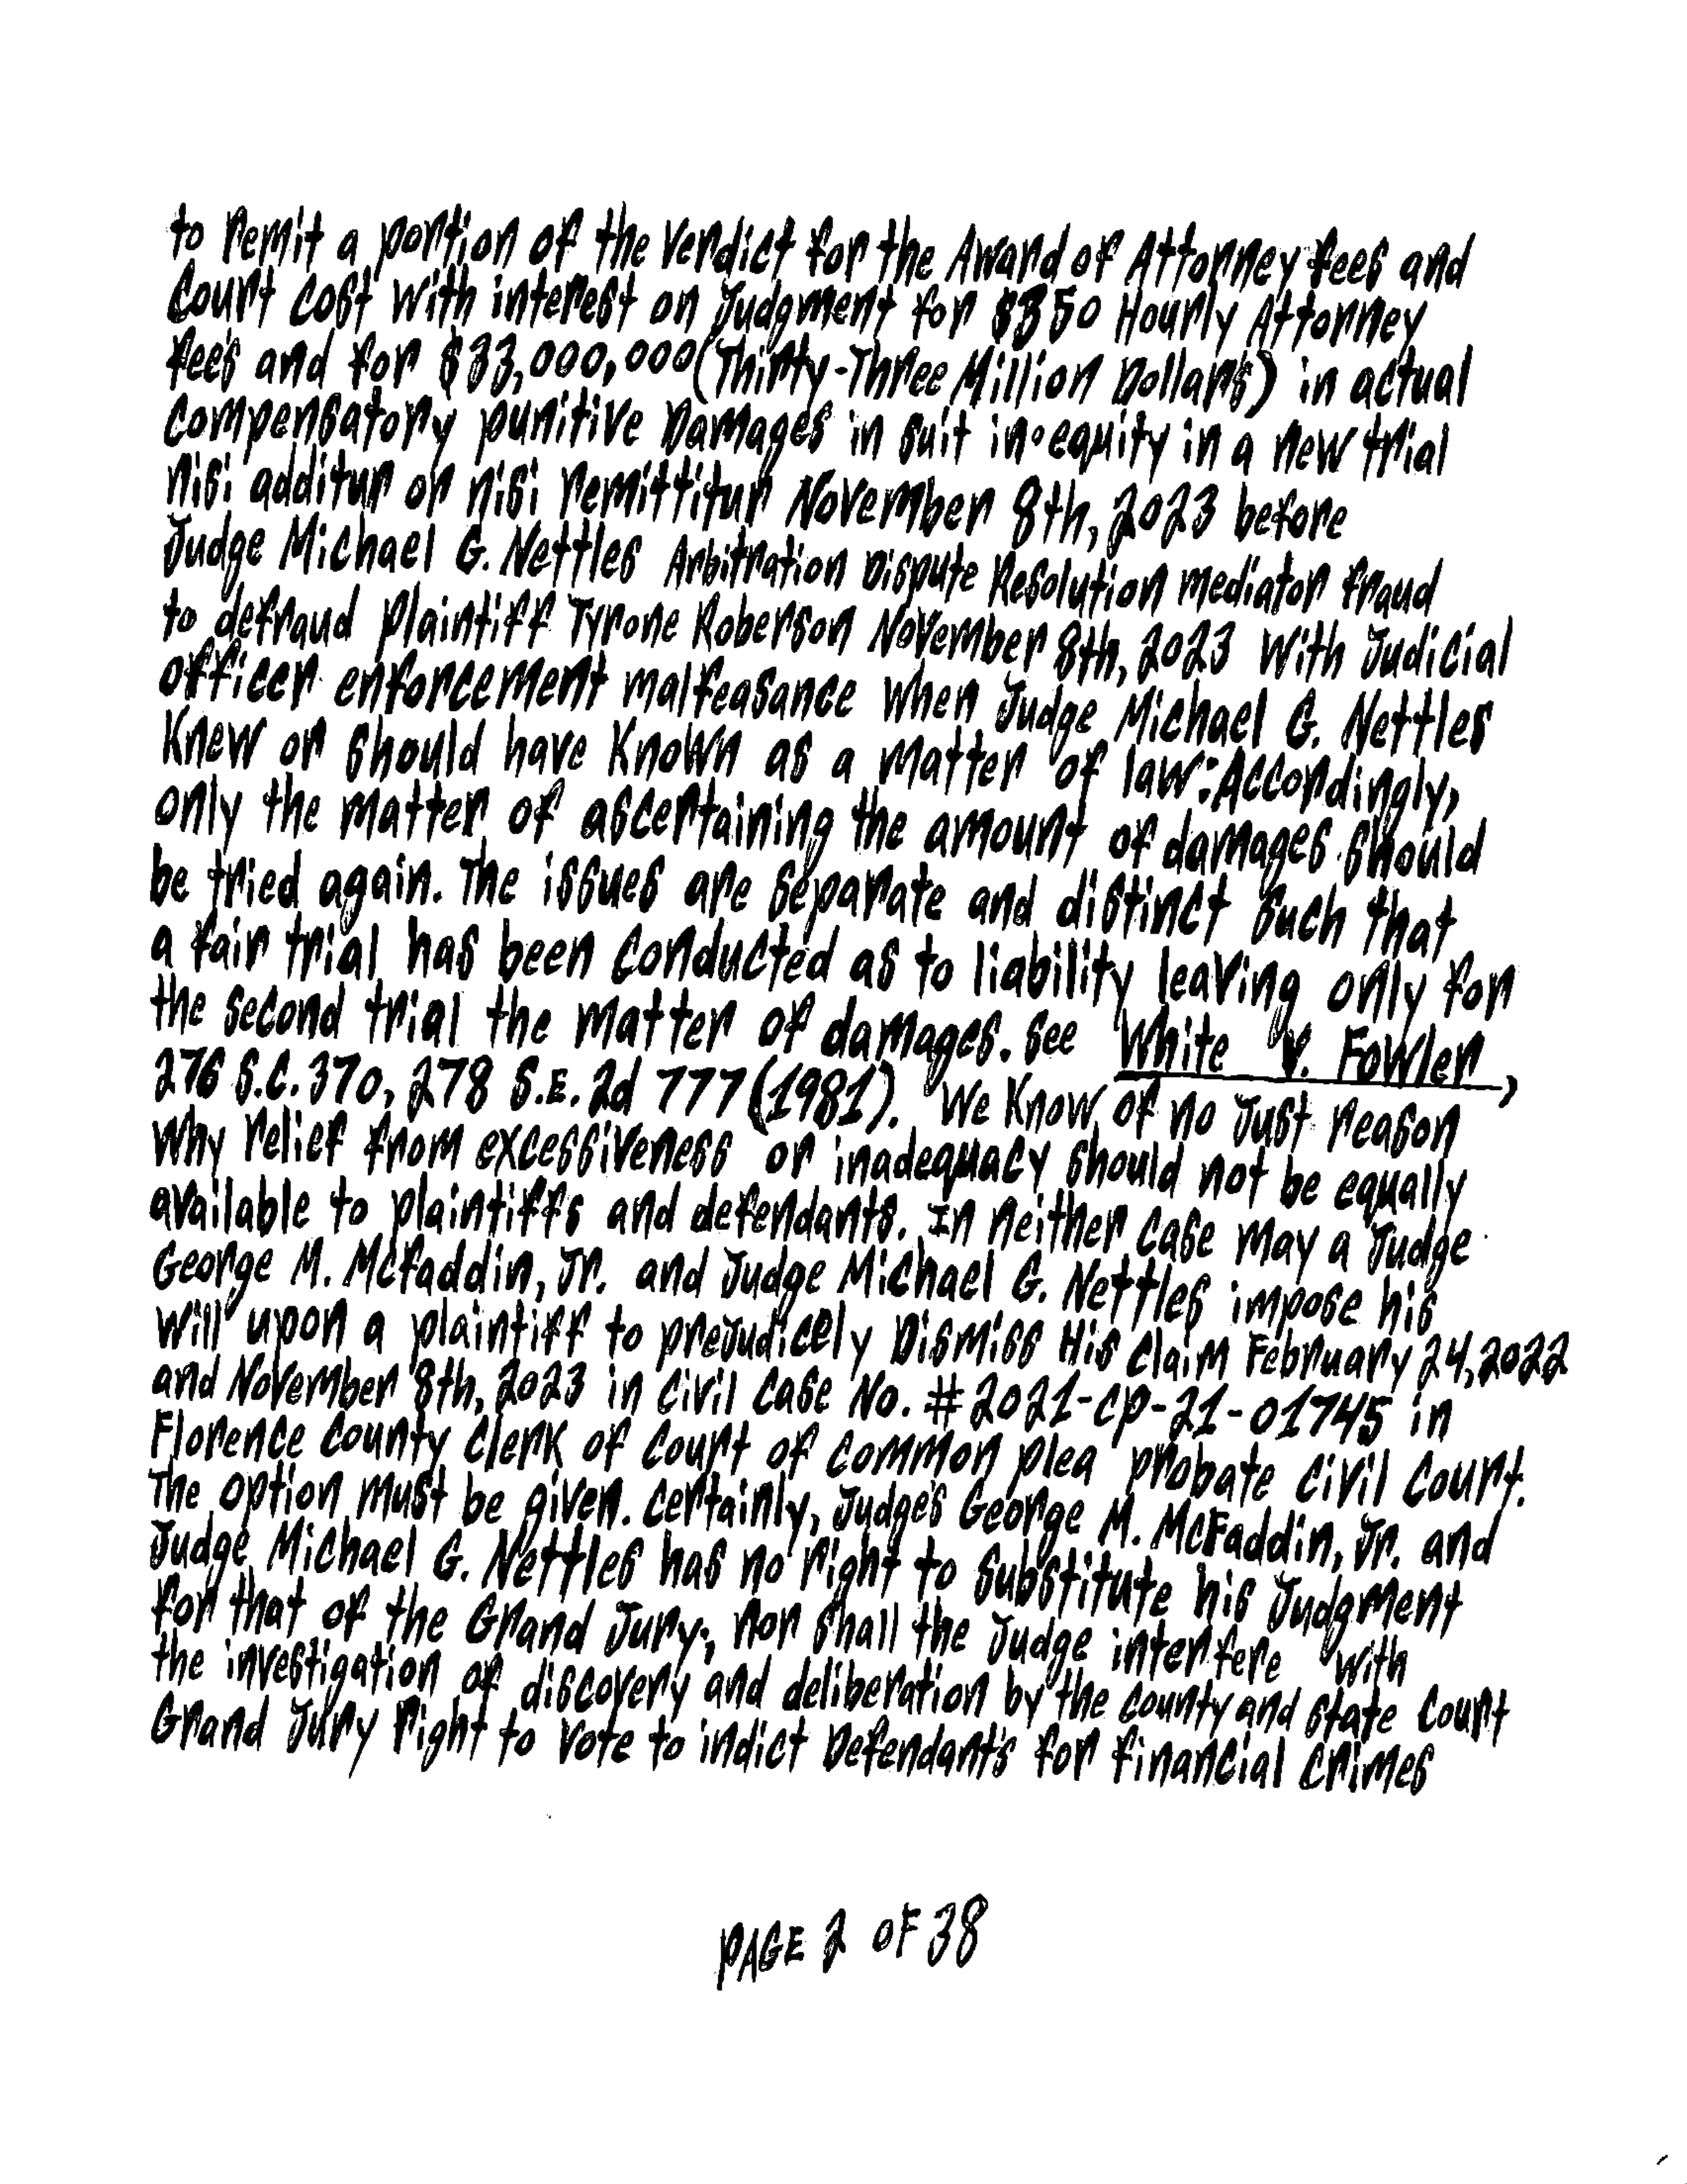 to remit a portion of the verdict for the Award of Attorney fees and
Court cost with interest on Judgment for $350 Hourly Attorney
fee's and for $33,000,000 (Thirty-Three Million Dollar's) in actual
compensatory punitive Damages in suit in-equity in a new trial
nisi additur or nisi remittitur November 8th, 2023 before
Judge Michael G. Nettles Arbitration Dispute Resolution mediator fraud
to defraud plaintiff Tyrone Roberson November 8th, 2023 with Judicial
officer enforcement malfeasance when Judge Michael G. Nettles
Knew or should have Known as a matter of law: Accordingly,
only the matter of ascertaining the amount of damages should
be tried again. The issues are separate and distinct such that
a fair trial has been conducted as to liability leaving only for
the second trial the matter of damages. see White v. Fowler,
276 S.C. 370, 278 S.E. 2d 777 (1981). We Know of no Just reason
why relief from excessiveness or inadequacy should not be equally
available to plaintiffs and defendants. In neither case may a Judge
George M. McFaddin, Jr. and Judge Michael G. Nettles impose his
will upon a plaintiff to preJudicely Dismiss His Claim February 24, 2022
and November 8th, 2023 in Civil Case No. #2021-CP-21-01745 in
Florence County Clerk of Court of Common plea probate Civil Court.
The option must be given. Certainly, Judge's George M. McFaddin, Jr. and
Judge Michael G. Nettles has no right to substitute his Judgment
for that of the Grand Jury; nor shall the Judge interfere with
the investigation of discovery and deliberation by the county and state Court
Grand Jury right to vote to indict Defendant's for financial Crimes
PAGE 2 OF 38